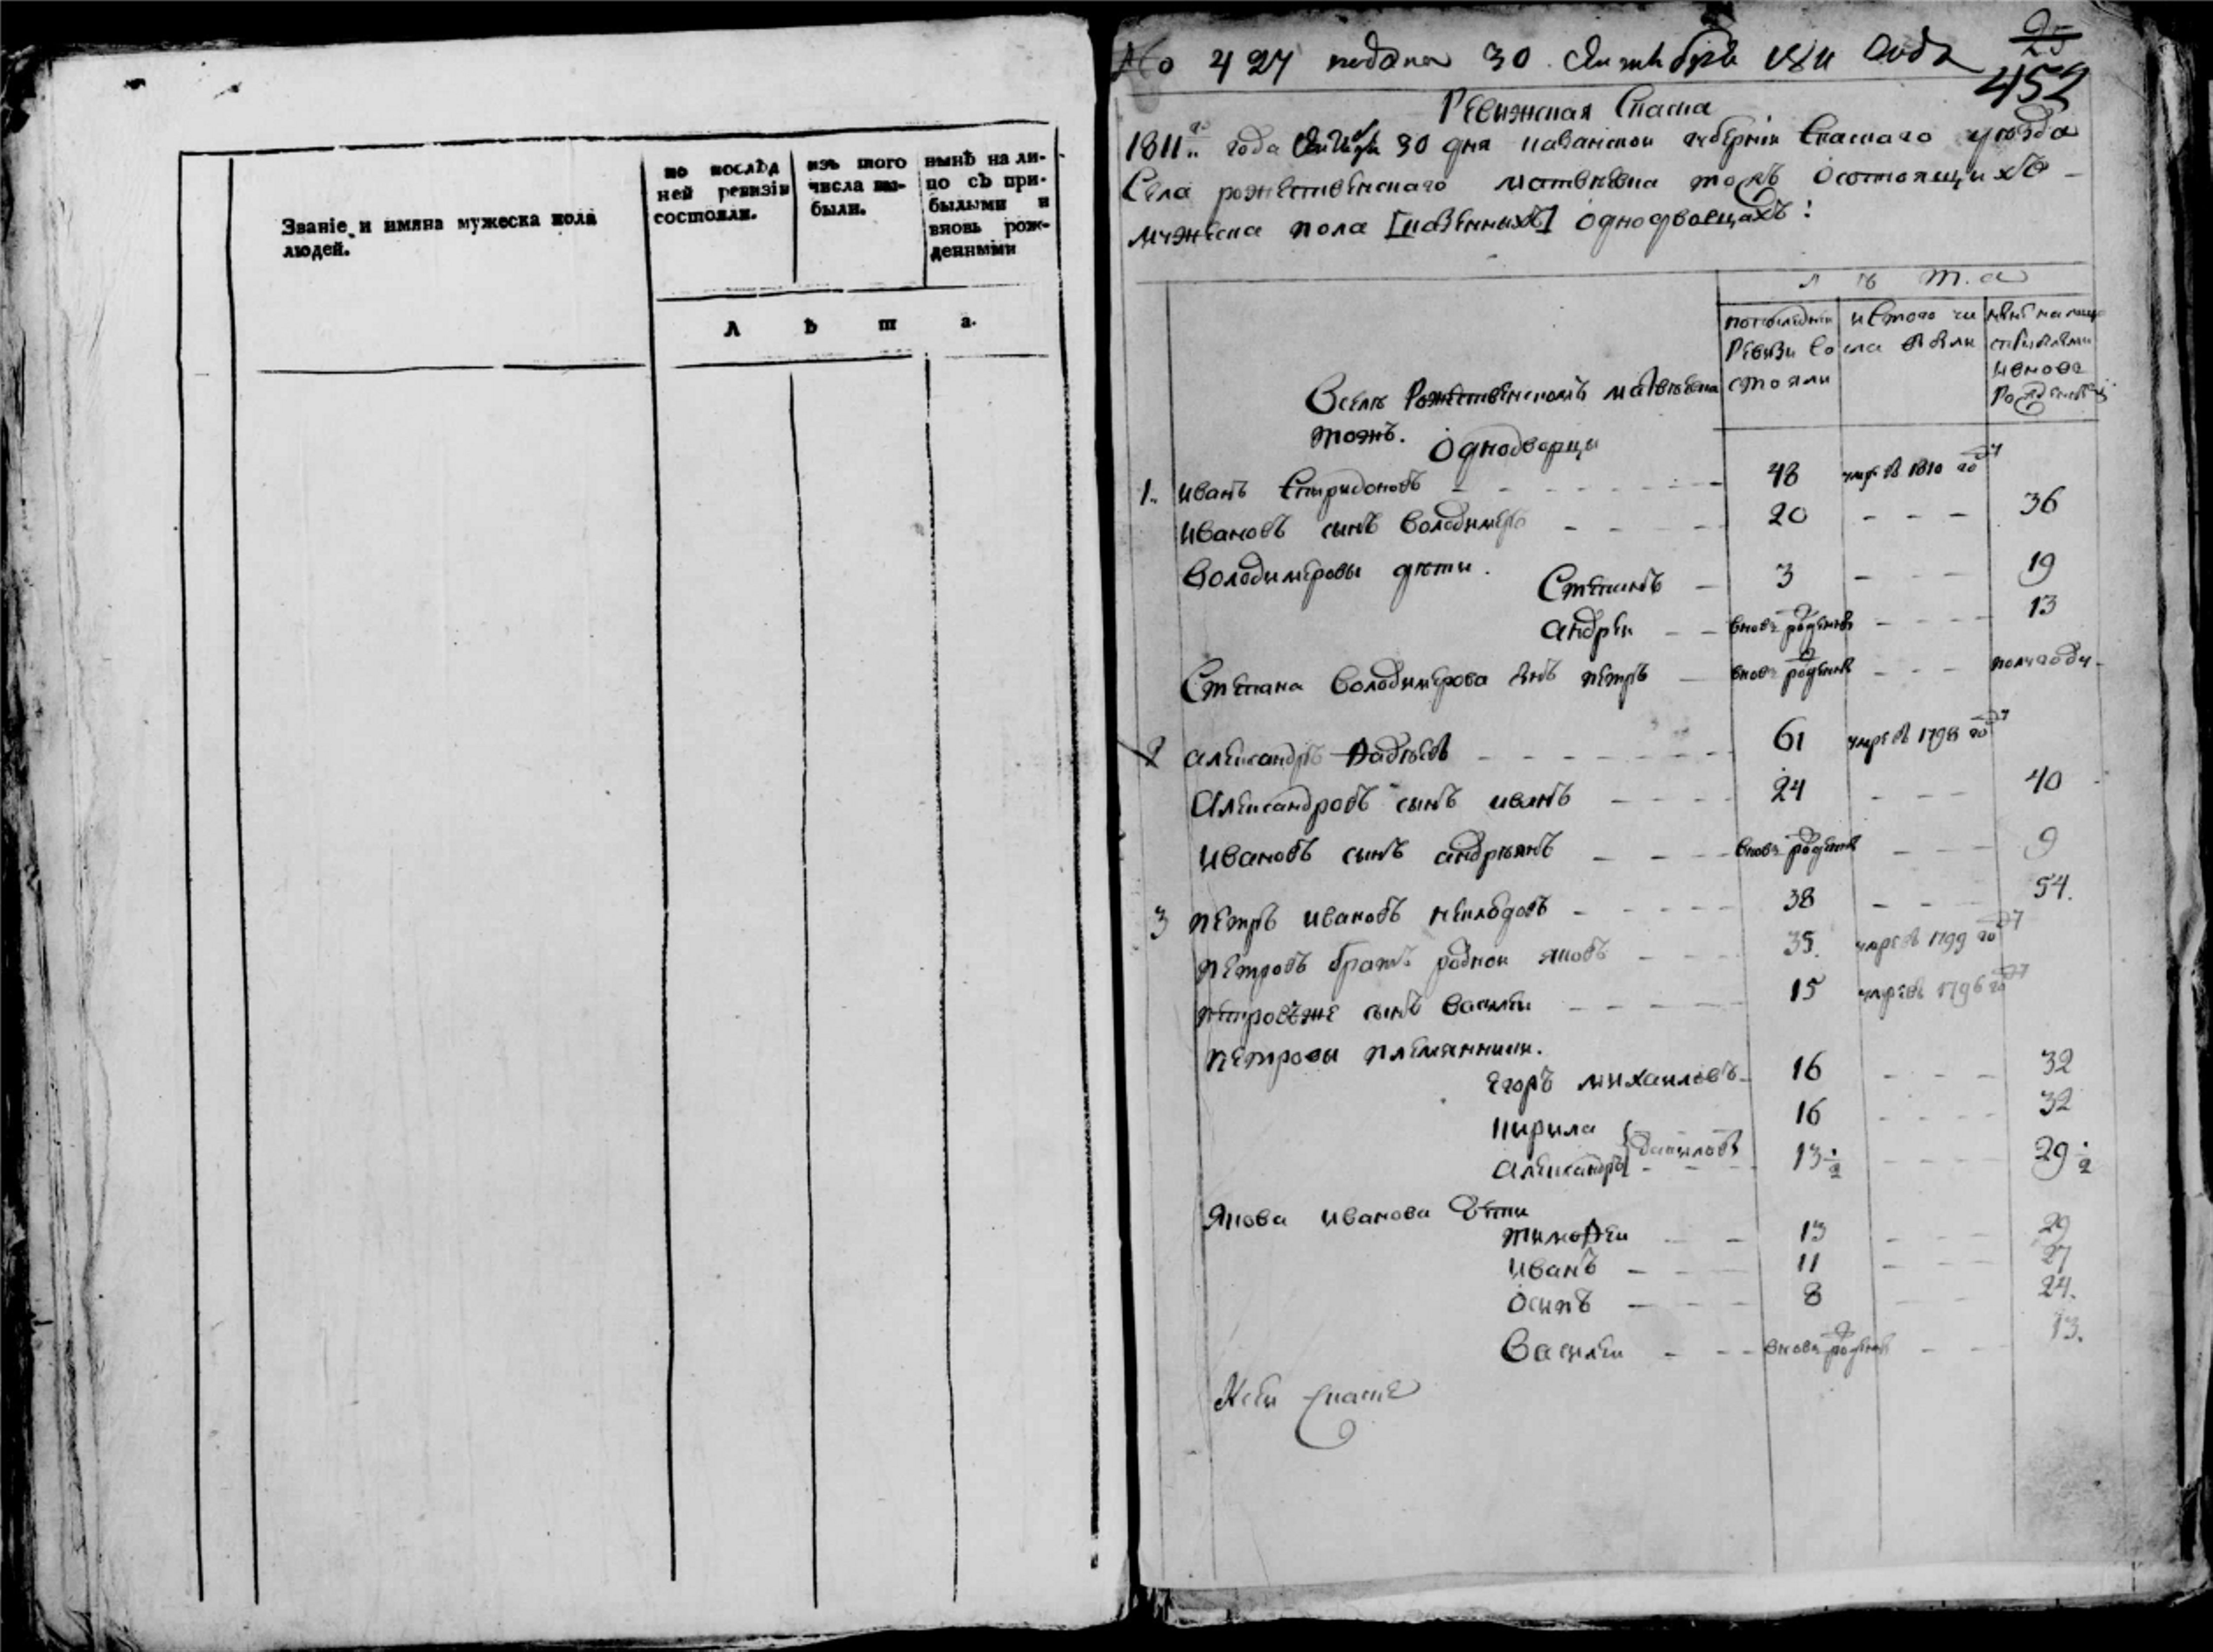 Званіе и имяна мужеска пола
людей.
по послѣд
ней ревизіи
состояли.
изъ того
числа вы-
были.
нынѣ на ли-
цо съ при-
былыми и
вновь рож-
денными
Л ѣ т а.
No 427 подана 30 Октября 1811 Года
25
452
Ревижская Скаска
1811го года Октября 30 дня казанской губернїи Спаскаго уѣзда
Села рожественскаго матвѣевка тожъ Осотоящихъ
мужеска пола [казенныхъ] однодворцахъ:
л ѣ т. а
попоследнеи Ревизи Состояли
истого числа выбыли
нынѣ налицо сприбылыми ивнове Рожденными
Вселѣ Рожественскомъ матвѣевка
тожъ. Однодворцы
1. иванъ Спиридоновъ 48 умре въ 1810 году
ивановъ сынъ володимеръ 20 36
володимеровы дѣти. Степанъ 3 19
андреи вновь рожденъ 13
Степана володимерова сынъ петръ вновь рожденъ полугоду
2 александръ Фадѣевъ 61 умре въ 1798 году
Александровъ сынъ иванъ 24 40
ивановъ сынъ андрѣянъ вновь рожденъ 9
3 петръ ивановъ 38 54.
петровъ братъ роднои яковъ 35. умре въ 1799 году
петровъже сынъ василеи 15 умре въ 1796 году
петровы племянники.
Егоръ михаиловъ 16 32
кирила 16 32
александръ } даниловы 13 1/2 29 1/2
Якова иванова дѣти
тимофеи 13 29
иванъ 11 27
осипъ 8 24.
Василеи вновь рожденъ 13.
Ксеи скаске